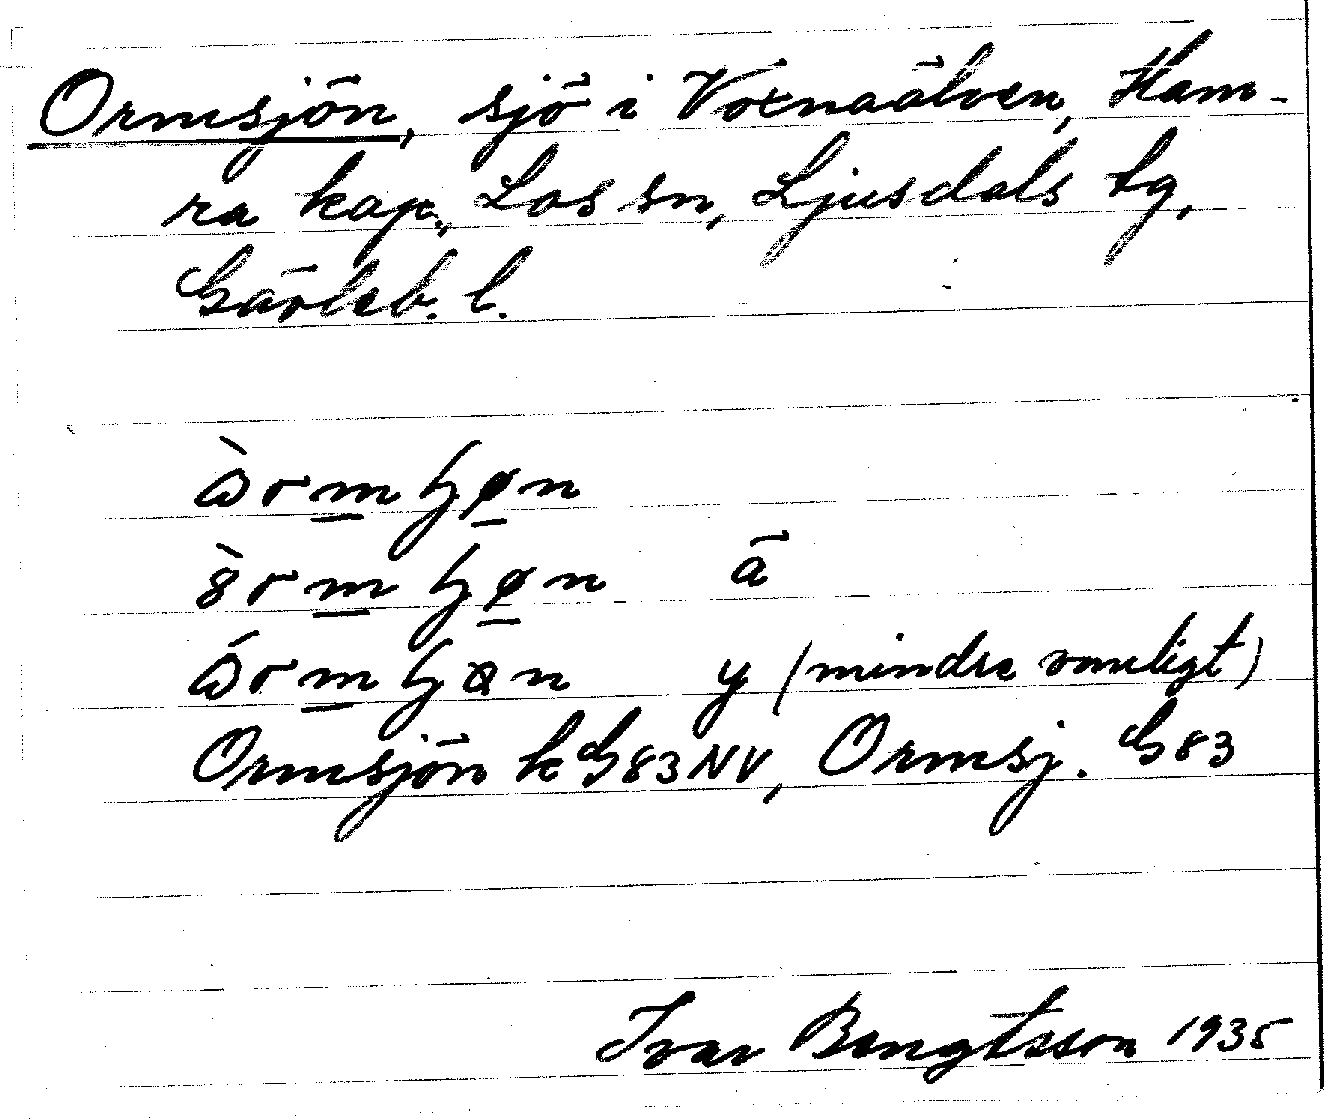 Ormsjön, sjö i Voxnaälven, Ham-
ra kap., Los sn, Ljusdals tg,
Gävleb. l.
ä
y (mindre vanligt)
Ormsjön k G83NV, Ormsj. G83
Ivar Bengtsson 1935